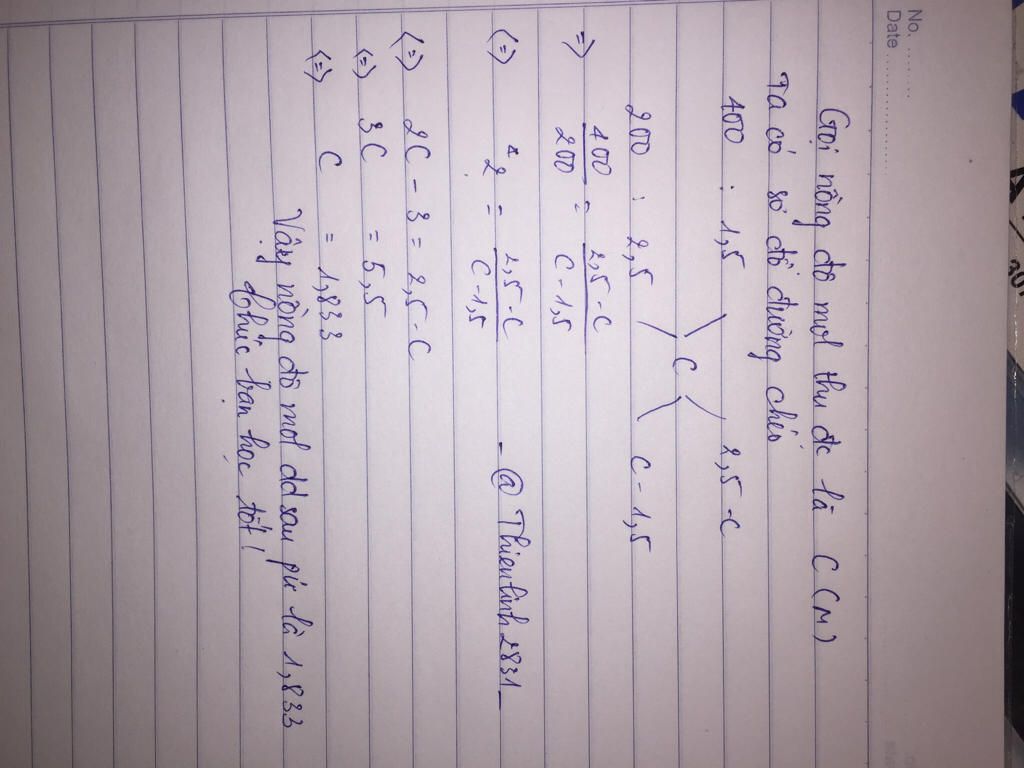 No. ........
Date ................
Gọi nồng độ mol thu đc là C (M)
Ta có sơ đồ đường chéo
400 : 1,5 2,5-C
C
200 : 2,5 C-1,5
=) 400/200 = 2,5-C/C-1,5
(=) 2 = 2,5-C/C-1,5 - @ Thienlinh2831_
(=) 2C - 3 = 2,5 - C
(=) 3C = 5,5
(=) C = 1,833
Vậy nồng độ mol dd sau pư là 1,833
Chúc bạn học tốt!